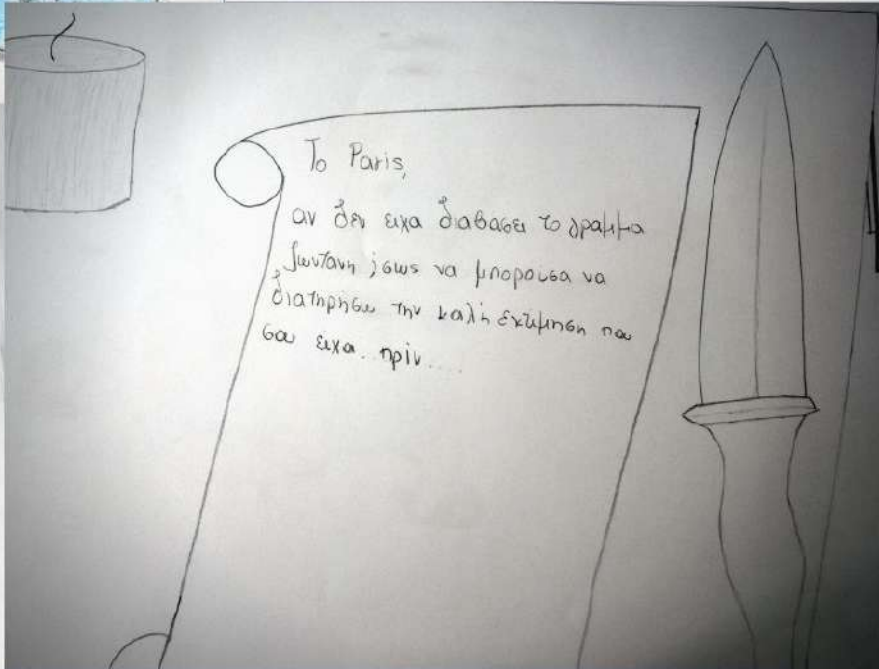 To Paris,
αν δεν ειχα διαβασει το γραμμα
ζωντανη ίσως να μπορούσα να
διατηρήσω την καλή εκτίμηση που
σου είχα.. πρίν....